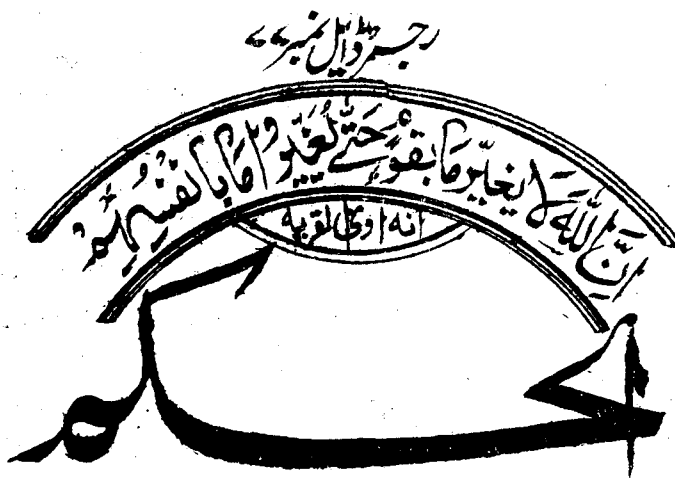 رجسٹرڈ ایل نمبر ۷۷
اِنَّ اللّٰهَ لَا یُغَیِّرُ مَا بِقَوْمٍ حَتّٰی یُغَیِّرُوْا مَا بِاَنْفُسِهِمْ
انه اوی القریه
الحکم